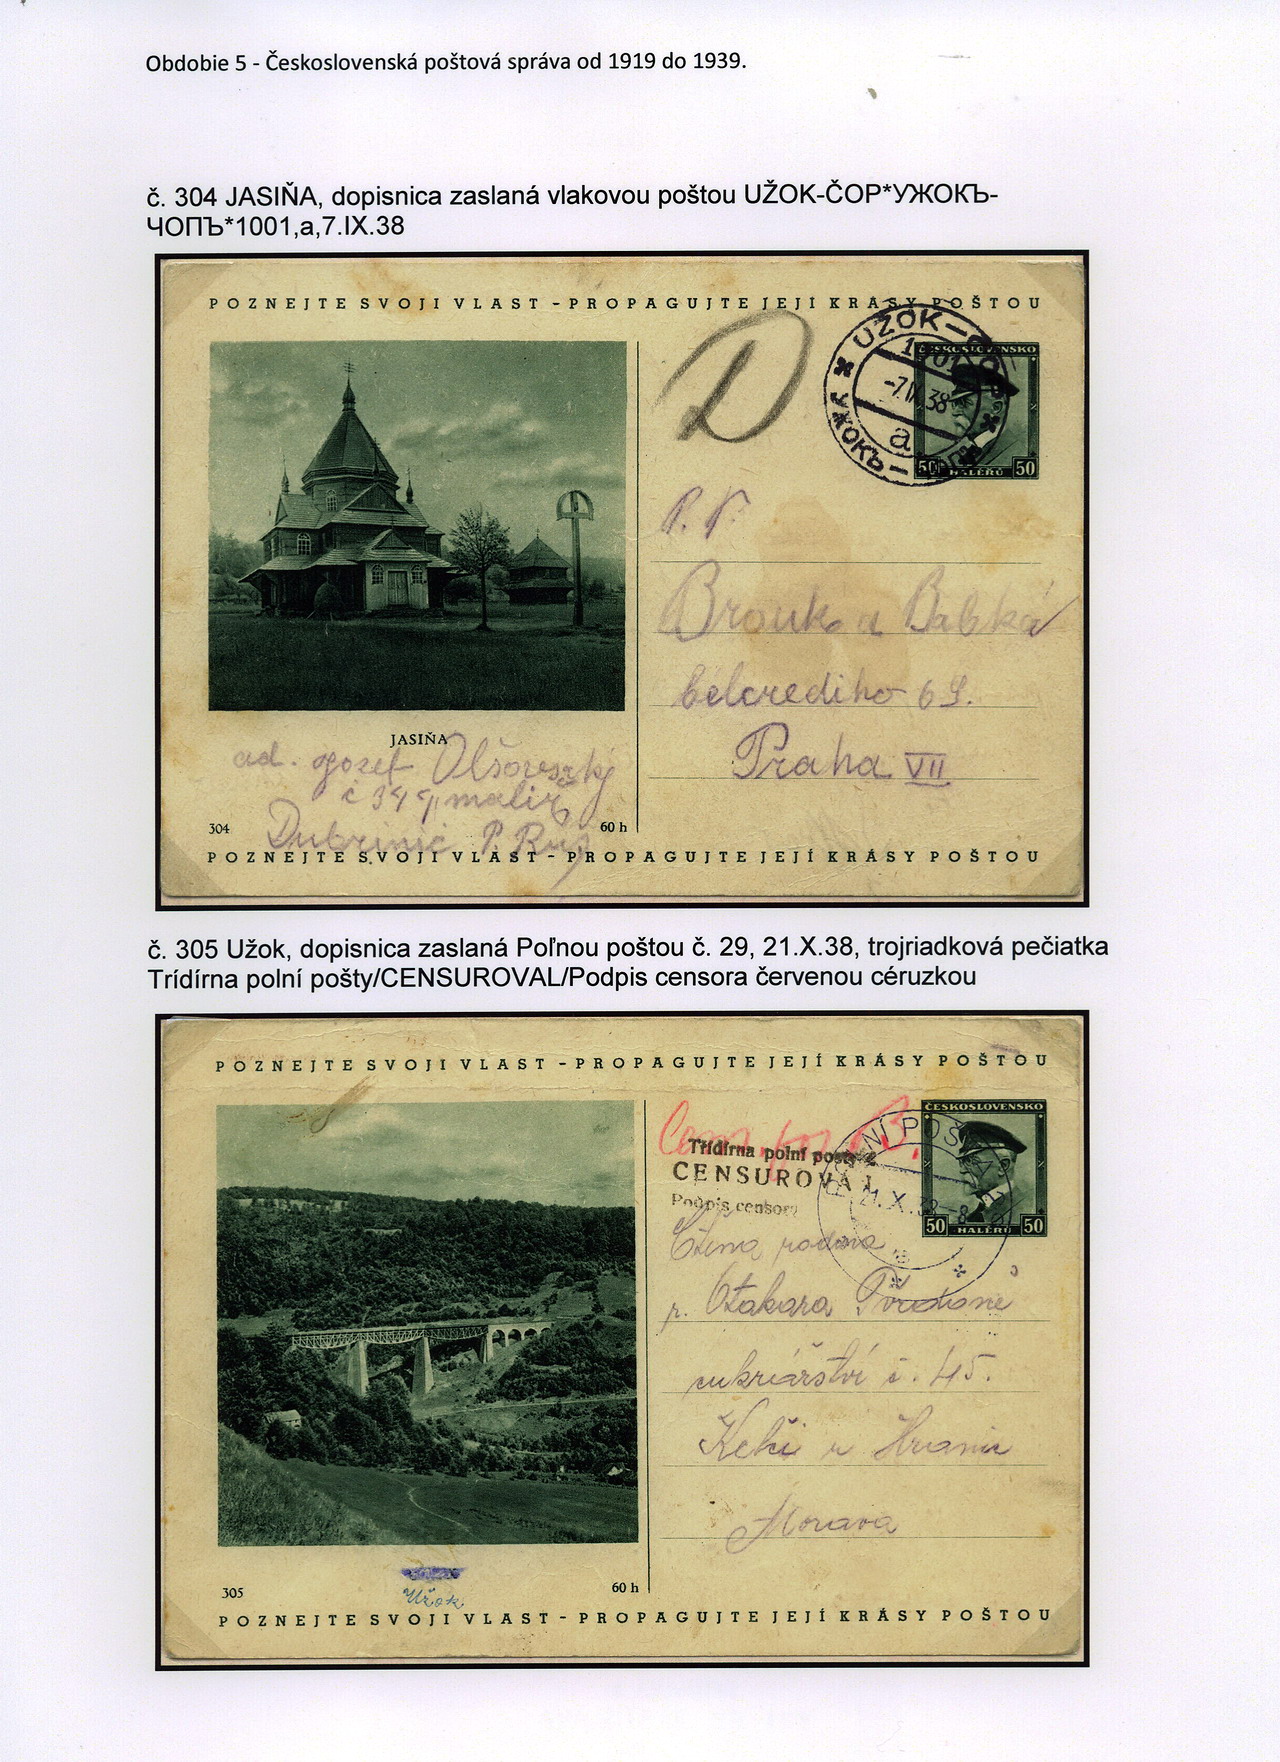 Obdobie 5 - Československá poštová správa od 1919 do 1939.
č. 304 JASIŇA, dopisnica zaslaná vlakovou poštou UŽOK-ČOP*УЖОКЪ-
ЧОПЪ*1001,a,7.IX.38
POZNEJTE SVOJI VLAST - PROPAGUJTE JEJÍ KRÁSY POŠTOU
D
UŽOK
1001
-7.IX.38
a
УЖОКЪ
ČESKOSLOVENSKO
50 HALÉŘŮ 50
P. T.
Brouk a Babka
Belcrediho
Praha VII
JASIŇA
ad. Jozef
Dubrinič P. Rus
304
60 h
POZNEJTE SVOJI VLAST - PROPAGUJTE JEJÍ KRÁSY POŠTOU
č. 305 Užok, dopisnica zaslaná Poľnou poštou č. 29, 21.X.38, trojriadková pečiatka
Trídírna polní pošty/CENSUROVAL/Podpis censora červenou céruzkou
POZNEJTE SVOJI VLAST - PROPAGUJTE JEJÍ KRÁSY POŠTOU
Třídírna polní pošty
CENSUROVAL
Podpis censora
POLNÍ POŠTA
21.X.38-8
ČESKOSLOVENSKO
50 HALÉŘŮ 50
Ctěná rodina
p. Otakara
cukrářství č. 45.
Kelč u Hranic
Morava
Užok
305
60 h
POZNEJTE SVOJI VLAST - PROPAGUJTE JEJÍ KRÁSY POŠTOU